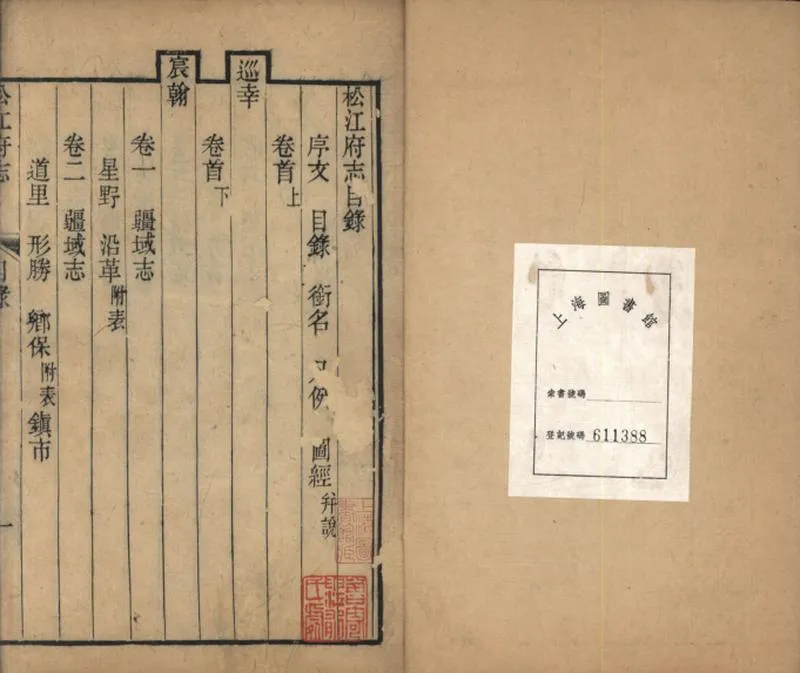 上海圖書館
索書號碼
登記號碼 611388
松江府志目錄
序文 目錄 銜名 凡例 圖經 弁說
卷首上
巡幸
卷首下
宸翰
卷一 疆域志
星野 沿革 附表
卷二 疆域志
道里 形勝 鄉保 附表 鎮市
松江府志
目錄
一